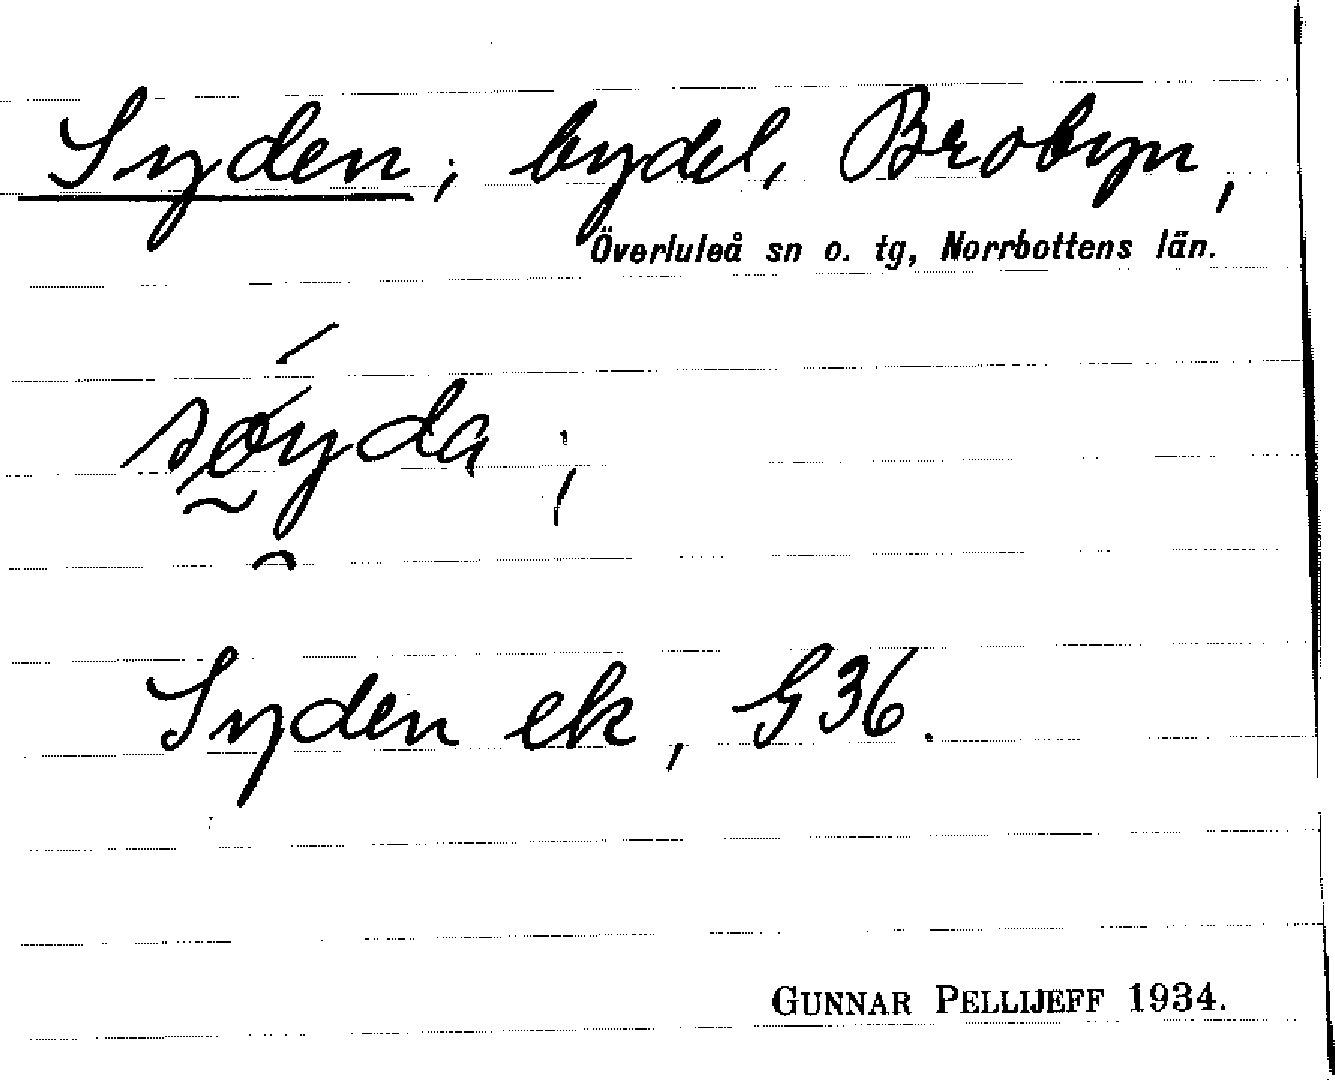 Syden; bydel, Brobyn,
Överluleå sn o. tg, Norrbottens län.
søyda;
Syden ek, G36.
GUNNAR PELLIJEFF 1934.